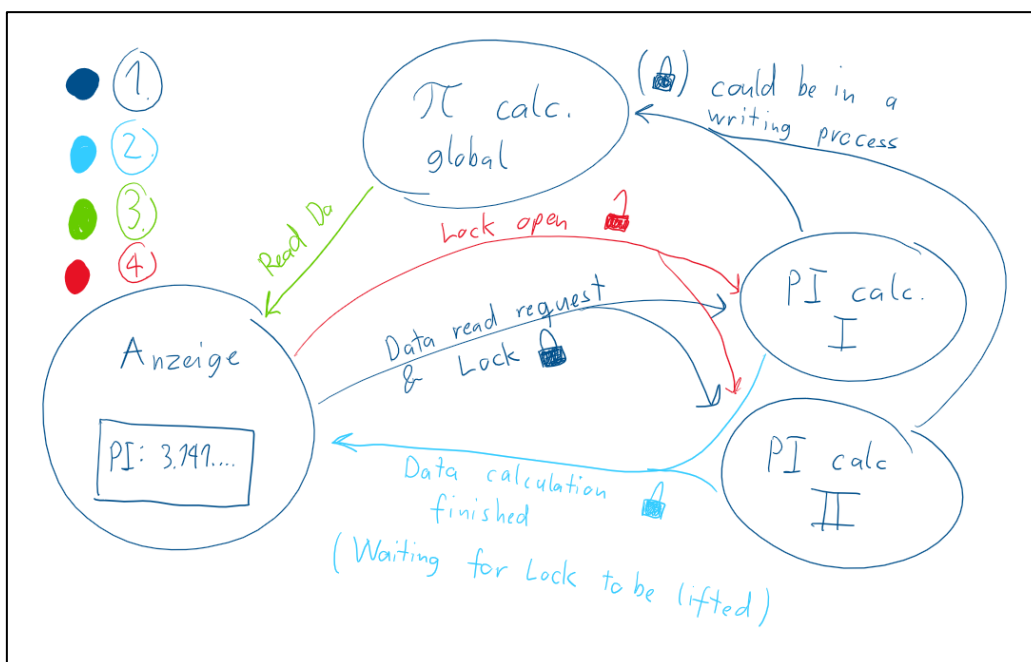 1.
2.
3.
4
π calc.
global
( ) could be in a
writing process
Read Da
Lock open
PI calc.
I
Data read request
& Lock
Anzeige
PI: 3.141....
PI calc
II
Data calculation
finished
(Waiting for Lock to be lifted)